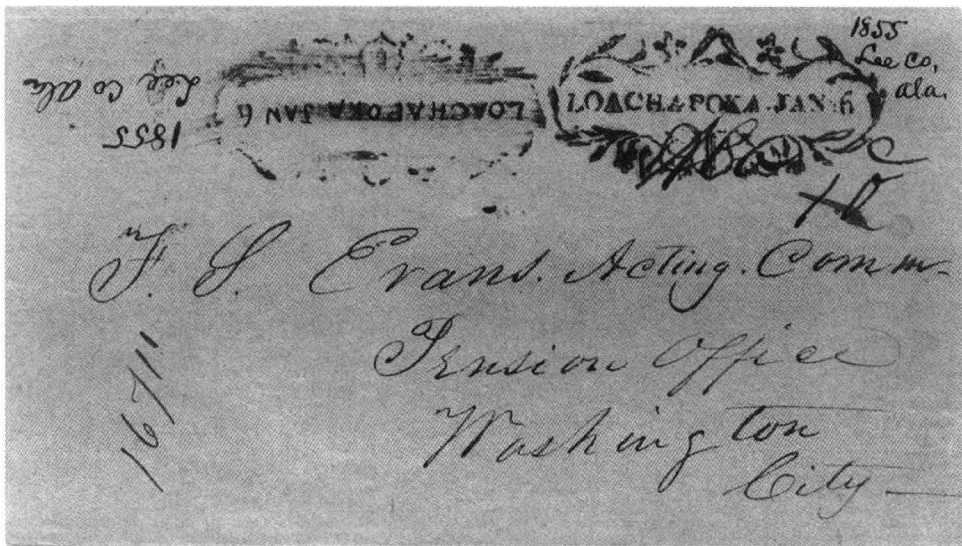 1855
Lee Co,
ala.
LOACHAPOKA JAN 6
LOACHAPOKA JAN 6
1855
Lee Co ala
F. S. Evans. Acting. Comm-
Pension Office
Washington
City
16711